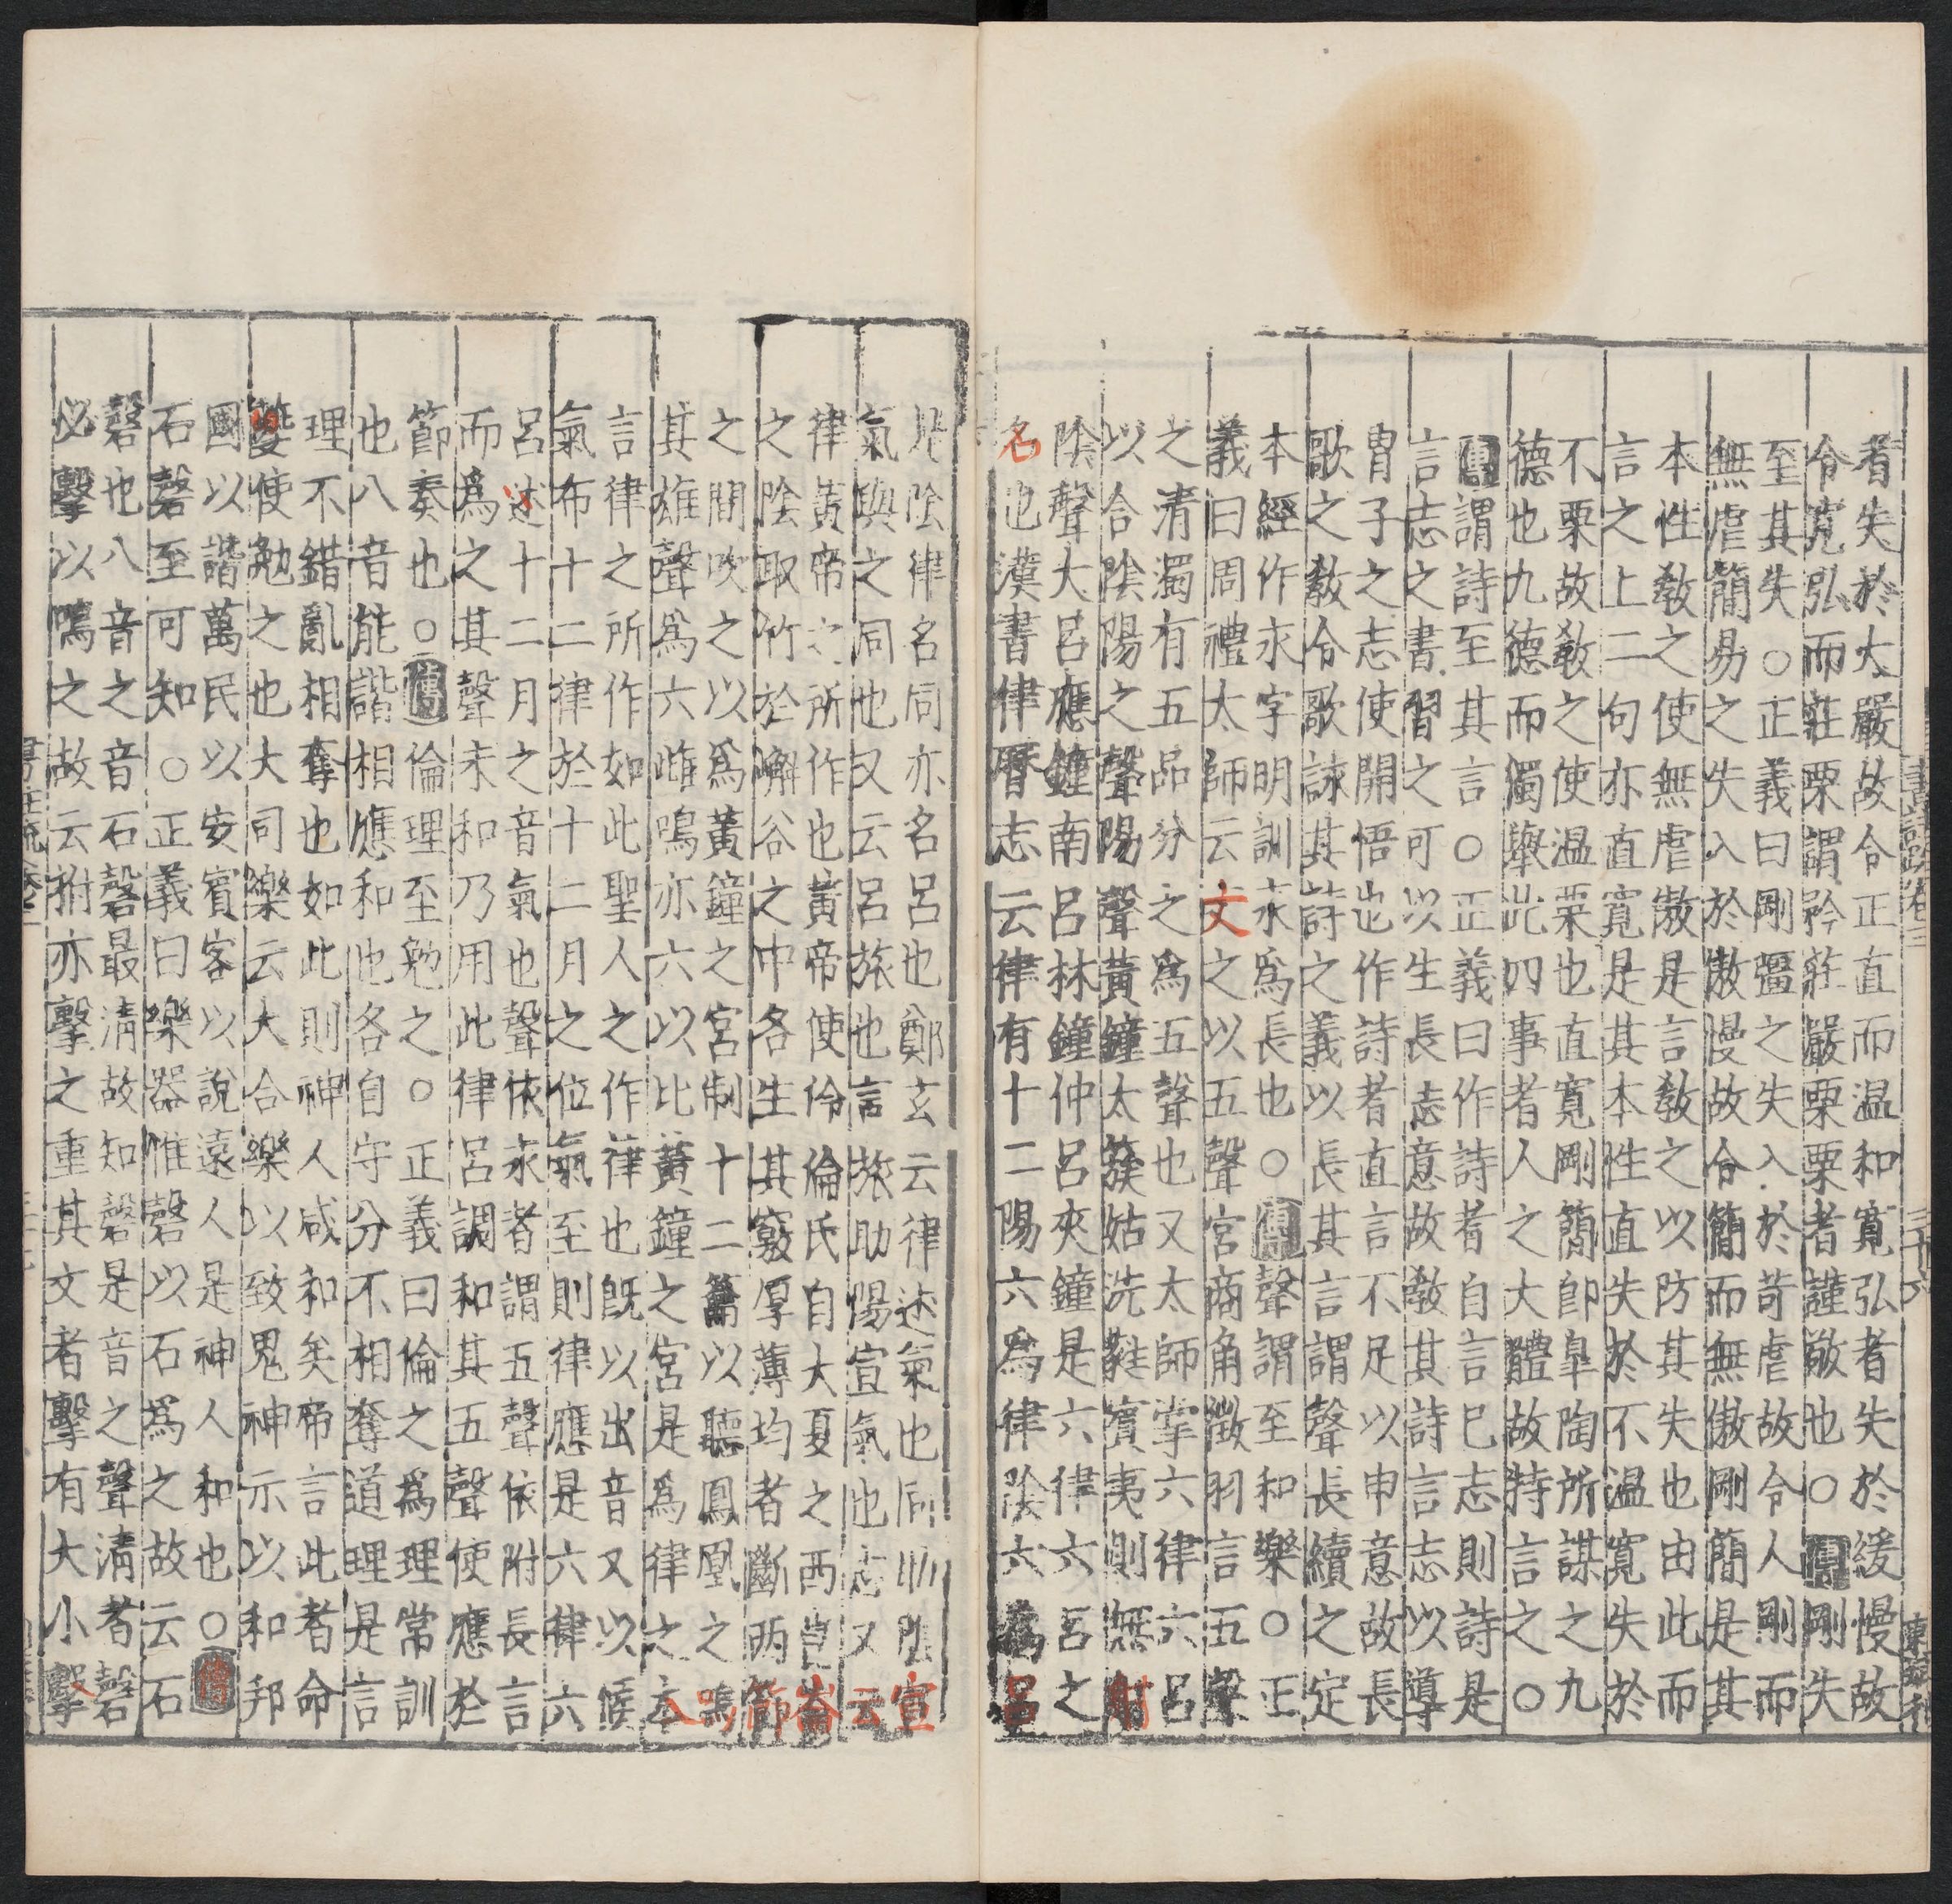 者失於太嚴故令正直而溫和寬弘者失於緩慢故
令寬弘而莊栗謂矜莊嚴栗栗者謹敬也○傳剛失
至其失○正義曰剛彊之失入於苛虐故令人剛而
無虐簡易之失入於傲慢故令簡而無傲剛簡是其
本性教之使無虐傲是言教之以防其失也由此而
言之上二句亦直寬是其本性直失於不溫寬失於
不栗故教之使溫栗也直寬剛簡卽皐陶所謀之九
德也九德而獨舉此四事者人之大體故特言之○
傳謂詩至其言○正義曰作詩者自言己志則詩是
言志之書習之可以生長志意故教其詩言志以導
胄子之志使開悟也作詩者直言不足以申意故長
歌之教令歌詠其詩之義以長其言謂聲長續之定
本經作永字明訓永爲長也○傳聲謂至和樂○正
義曰周禮太師云文之以五聲宮商角徵羽言五聲
之清濁有五品分之爲五聲也又太師掌六律六呂
以合陰陽之聲陽聲黃鐘太蔟姑洗蕤賓夷則無射
陰聲大呂應鐘南呂林鐘仲呂夾鐘是六律六呂之
名也漢書律曆志云律有十二陽六爲律陰六爲呂
此陰律名同亦名呂也鄭玄云律述氣也同助陰宣
氣與之同也又云呂旅也言旅助陽宣氣也志又云
律黃帝之所作也黃帝使伶倫氏自大夏之西崑崙
之陰取竹於嶰谷之中各生其竅厚薄均者斷兩節
之間吹之以爲黃鐘之宮制十二籥以聽鳳凰之鳴
其雄聲爲六雌鳴亦六以比黃鐘之宮是爲律之本
言律之所作如此聖人之作律也旣以出音又以候
氣布十二律於十二月之位氣至則律應是六律六
呂述十二月之音氣也聲依永者謂五聲依附長言
而爲之其聲未和乃用此律呂調和其五聲使應於
節奏也○傳倫理至勉之○正義曰倫之爲理常訓
也八音能諧相應和也各自守分不相奪道理是言
理不錯亂相奪也如此則神人咸和矣帝言此者命
夔使勉之也大司樂云大合樂以致鬼神示以和邦
國以諧萬民以安賓客以說遠人是神人和也○傳
石磬至可知○正義曰樂器惟磬以石爲之故云石
磬也八音之音石磬最清故知磬是音之聲清者磬
必擊以鳴之故云拊亦擊之重其文者擊有大小擊